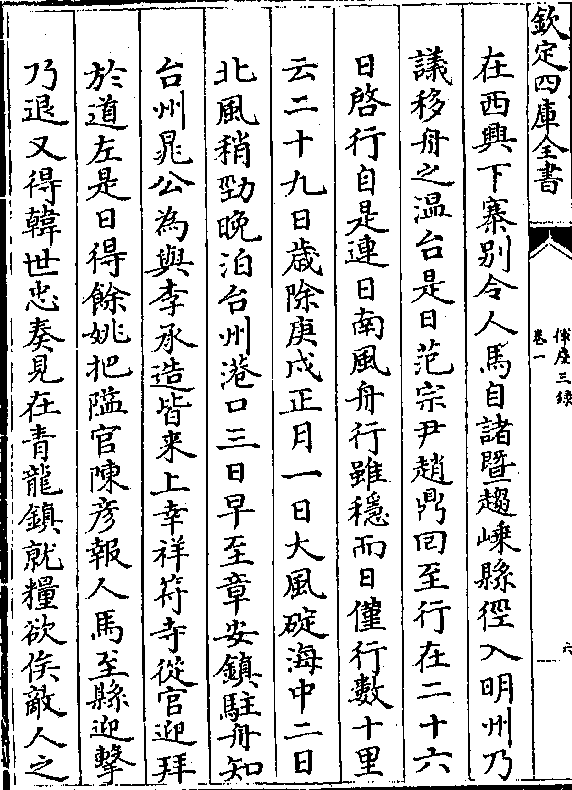 欽定四庫全書
揮麈三錄
卷一
六
在西興下寨别令人馬自諸暨趨嵊縣徑入明州乃
議移舟之温台是日范宗尹趙鼎回至行在二十六
日啓行自是連日南風舟行雖穩而日僅行數十里
云二十九日歳除庚戌正月一日大風碇海中二日
北風稍勁晚泊台州港口三日早至章安鎮駐舟知
台州晁公為與李承造皆来上幸祥符寺從官迎拜
於道左是日得餘姚把隘官陳彦報人馬至縣迎擊
乃退又得韓世忠奏見在青龍鎮就糧欲俟敵人之